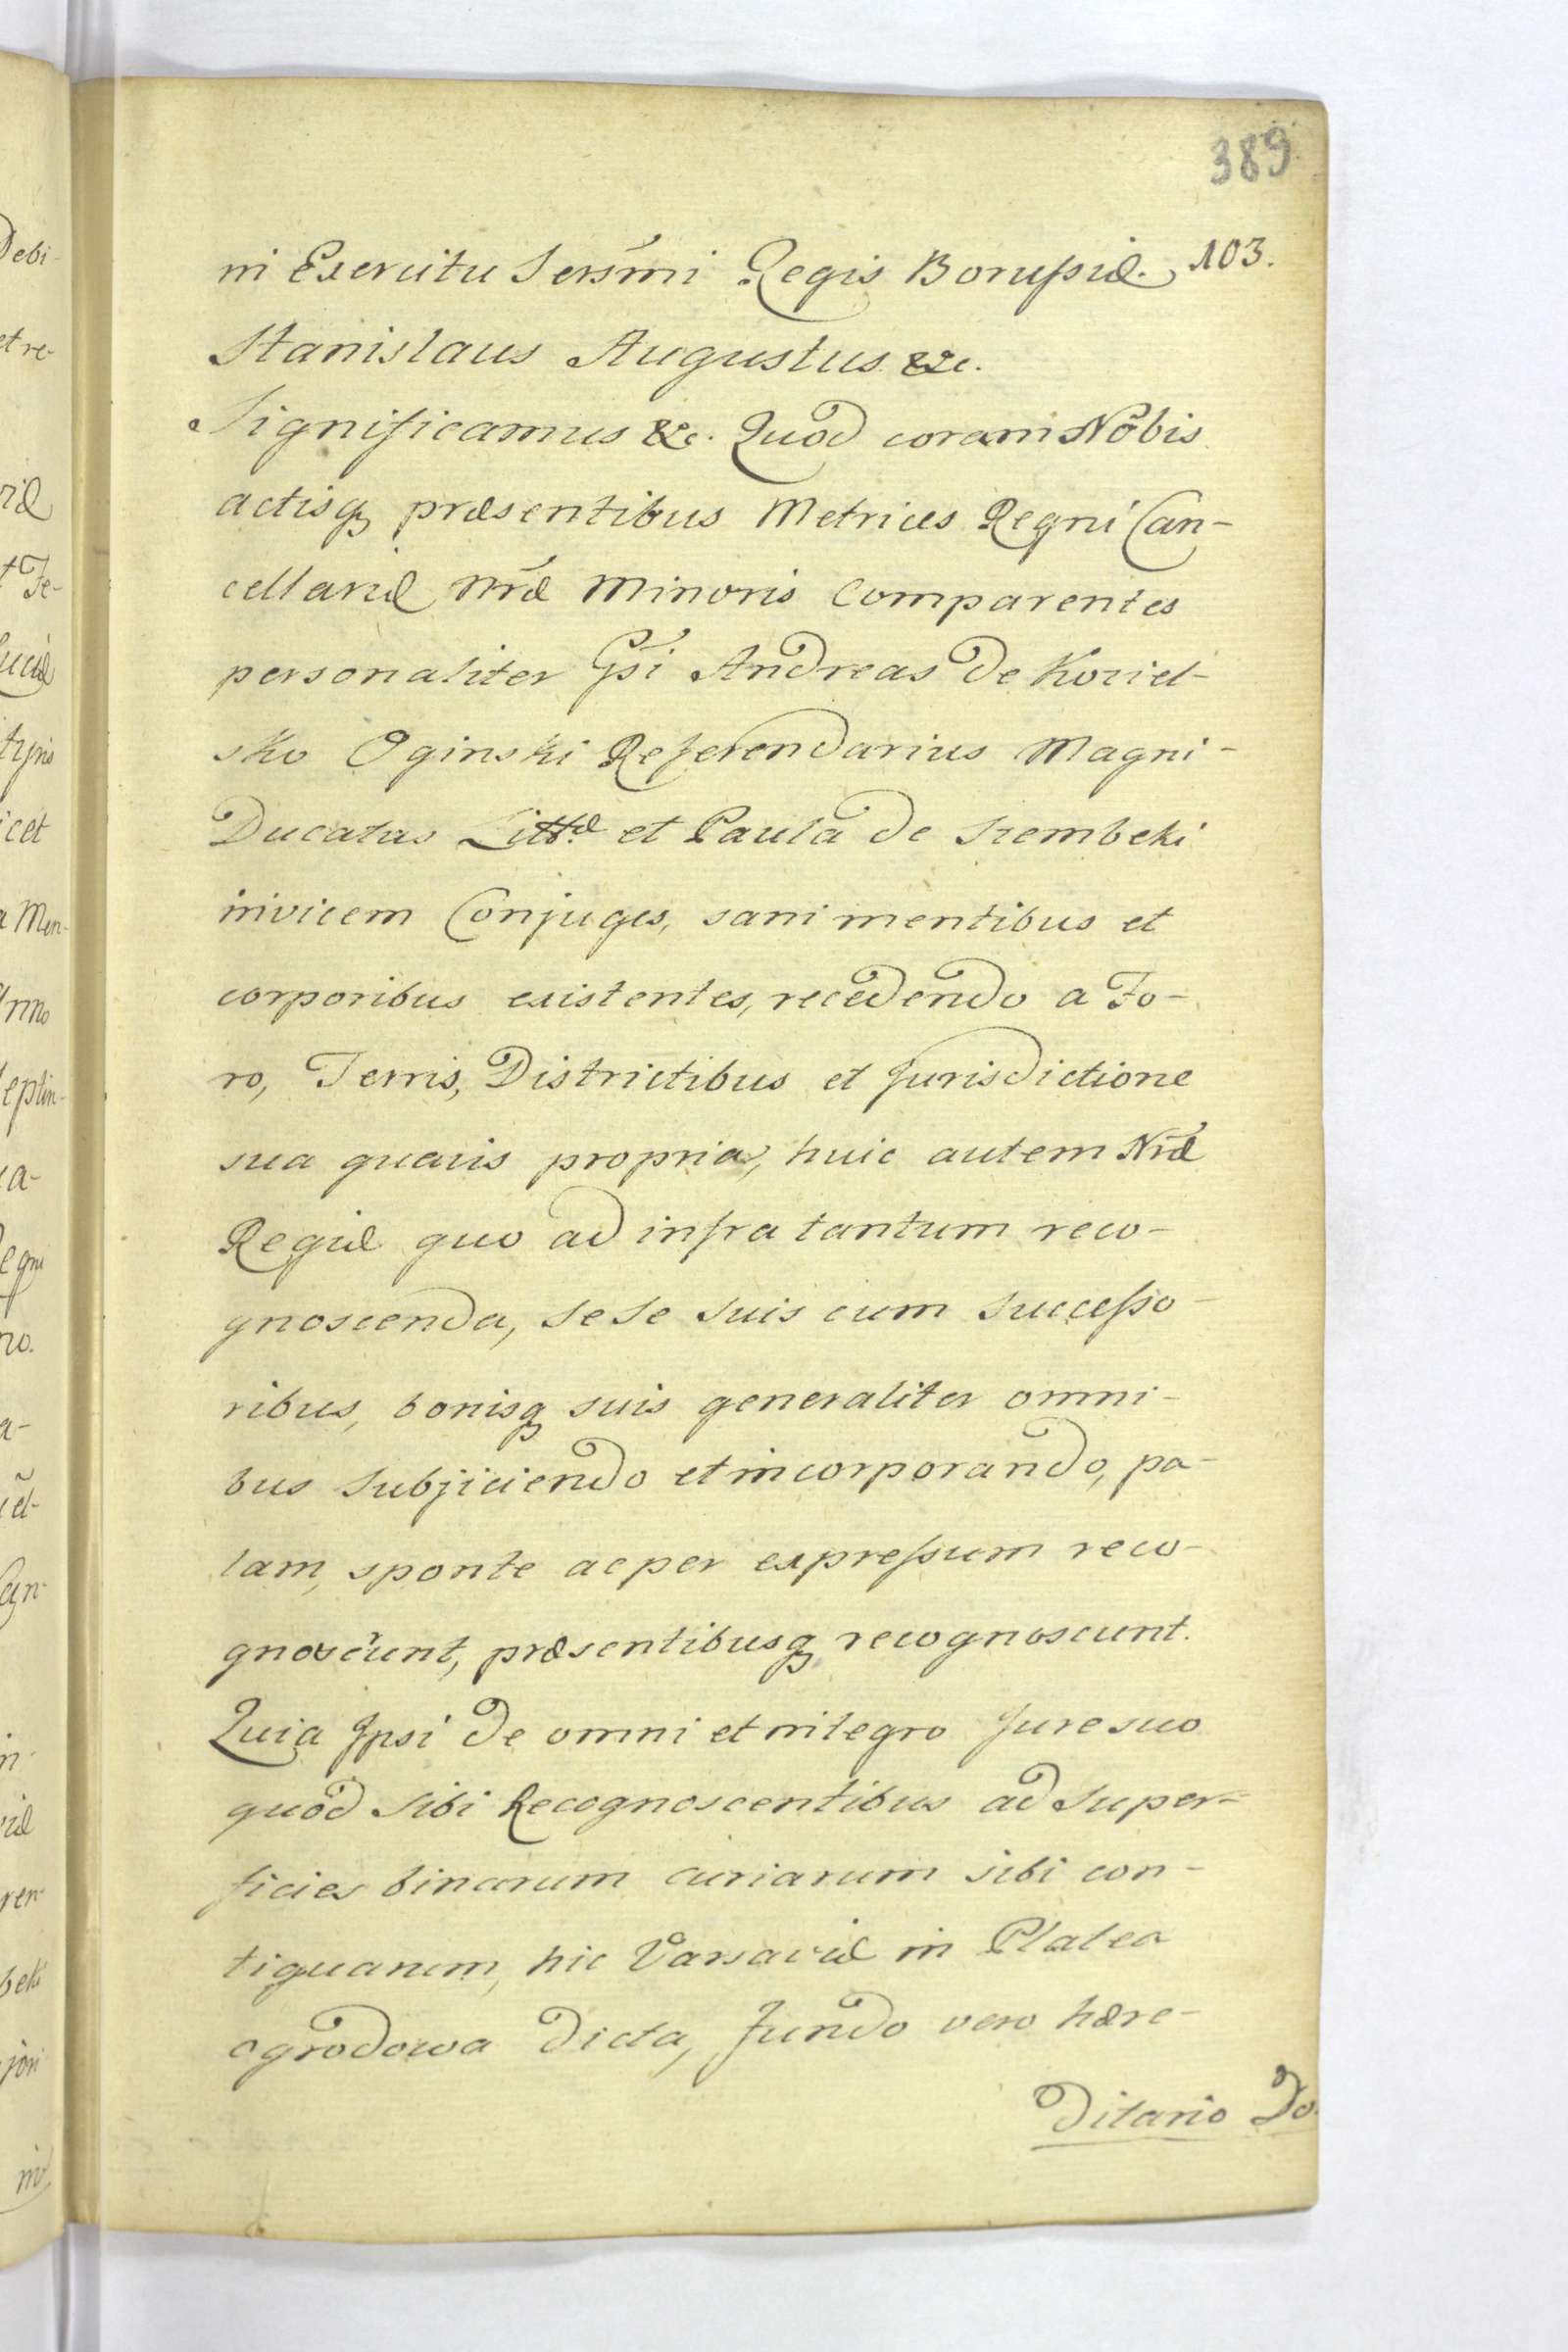 389
103.
in Exercitu Sersm̃i Regis Borussiæ.
Stanislaus Augustus &c.
Significamus &c. Quod coram Nobis
actisq præsentibus Metrices Regni Can-
cellariæ Nræ Minoris Comparentes
personaliter Gsi Andreas De Koziel-
sko Oginski Referendarius Magni-
Ducatus Littæ et Paula De Szembeki
invicem Conjuges, sani mentibus et
corporibus existentes, recedendo a Fo-
ro, Terris, Districtibus et Jurisdictione
sua quavis propria, huic autem Nræ
Regiæ quo ad infra tantum reco-
gnoscenda, sese suis cum successo-
ribus, bonisq suis generaliter omni-
bus subjiciendo et incorporando, pa-
lam, sponte ac per expressum reco-
gnoscunt, præsentibusq recognoscunt.
Quia Ipsi De omni et integro Jure suo
quod sibi Recognoscentibus ad super-
ficies binarum Curiarum sibi con-
tiguarum, hic Varsaviæ in Platea
ogrodowa Dicta, fundo vero hære-
Ditario Do.